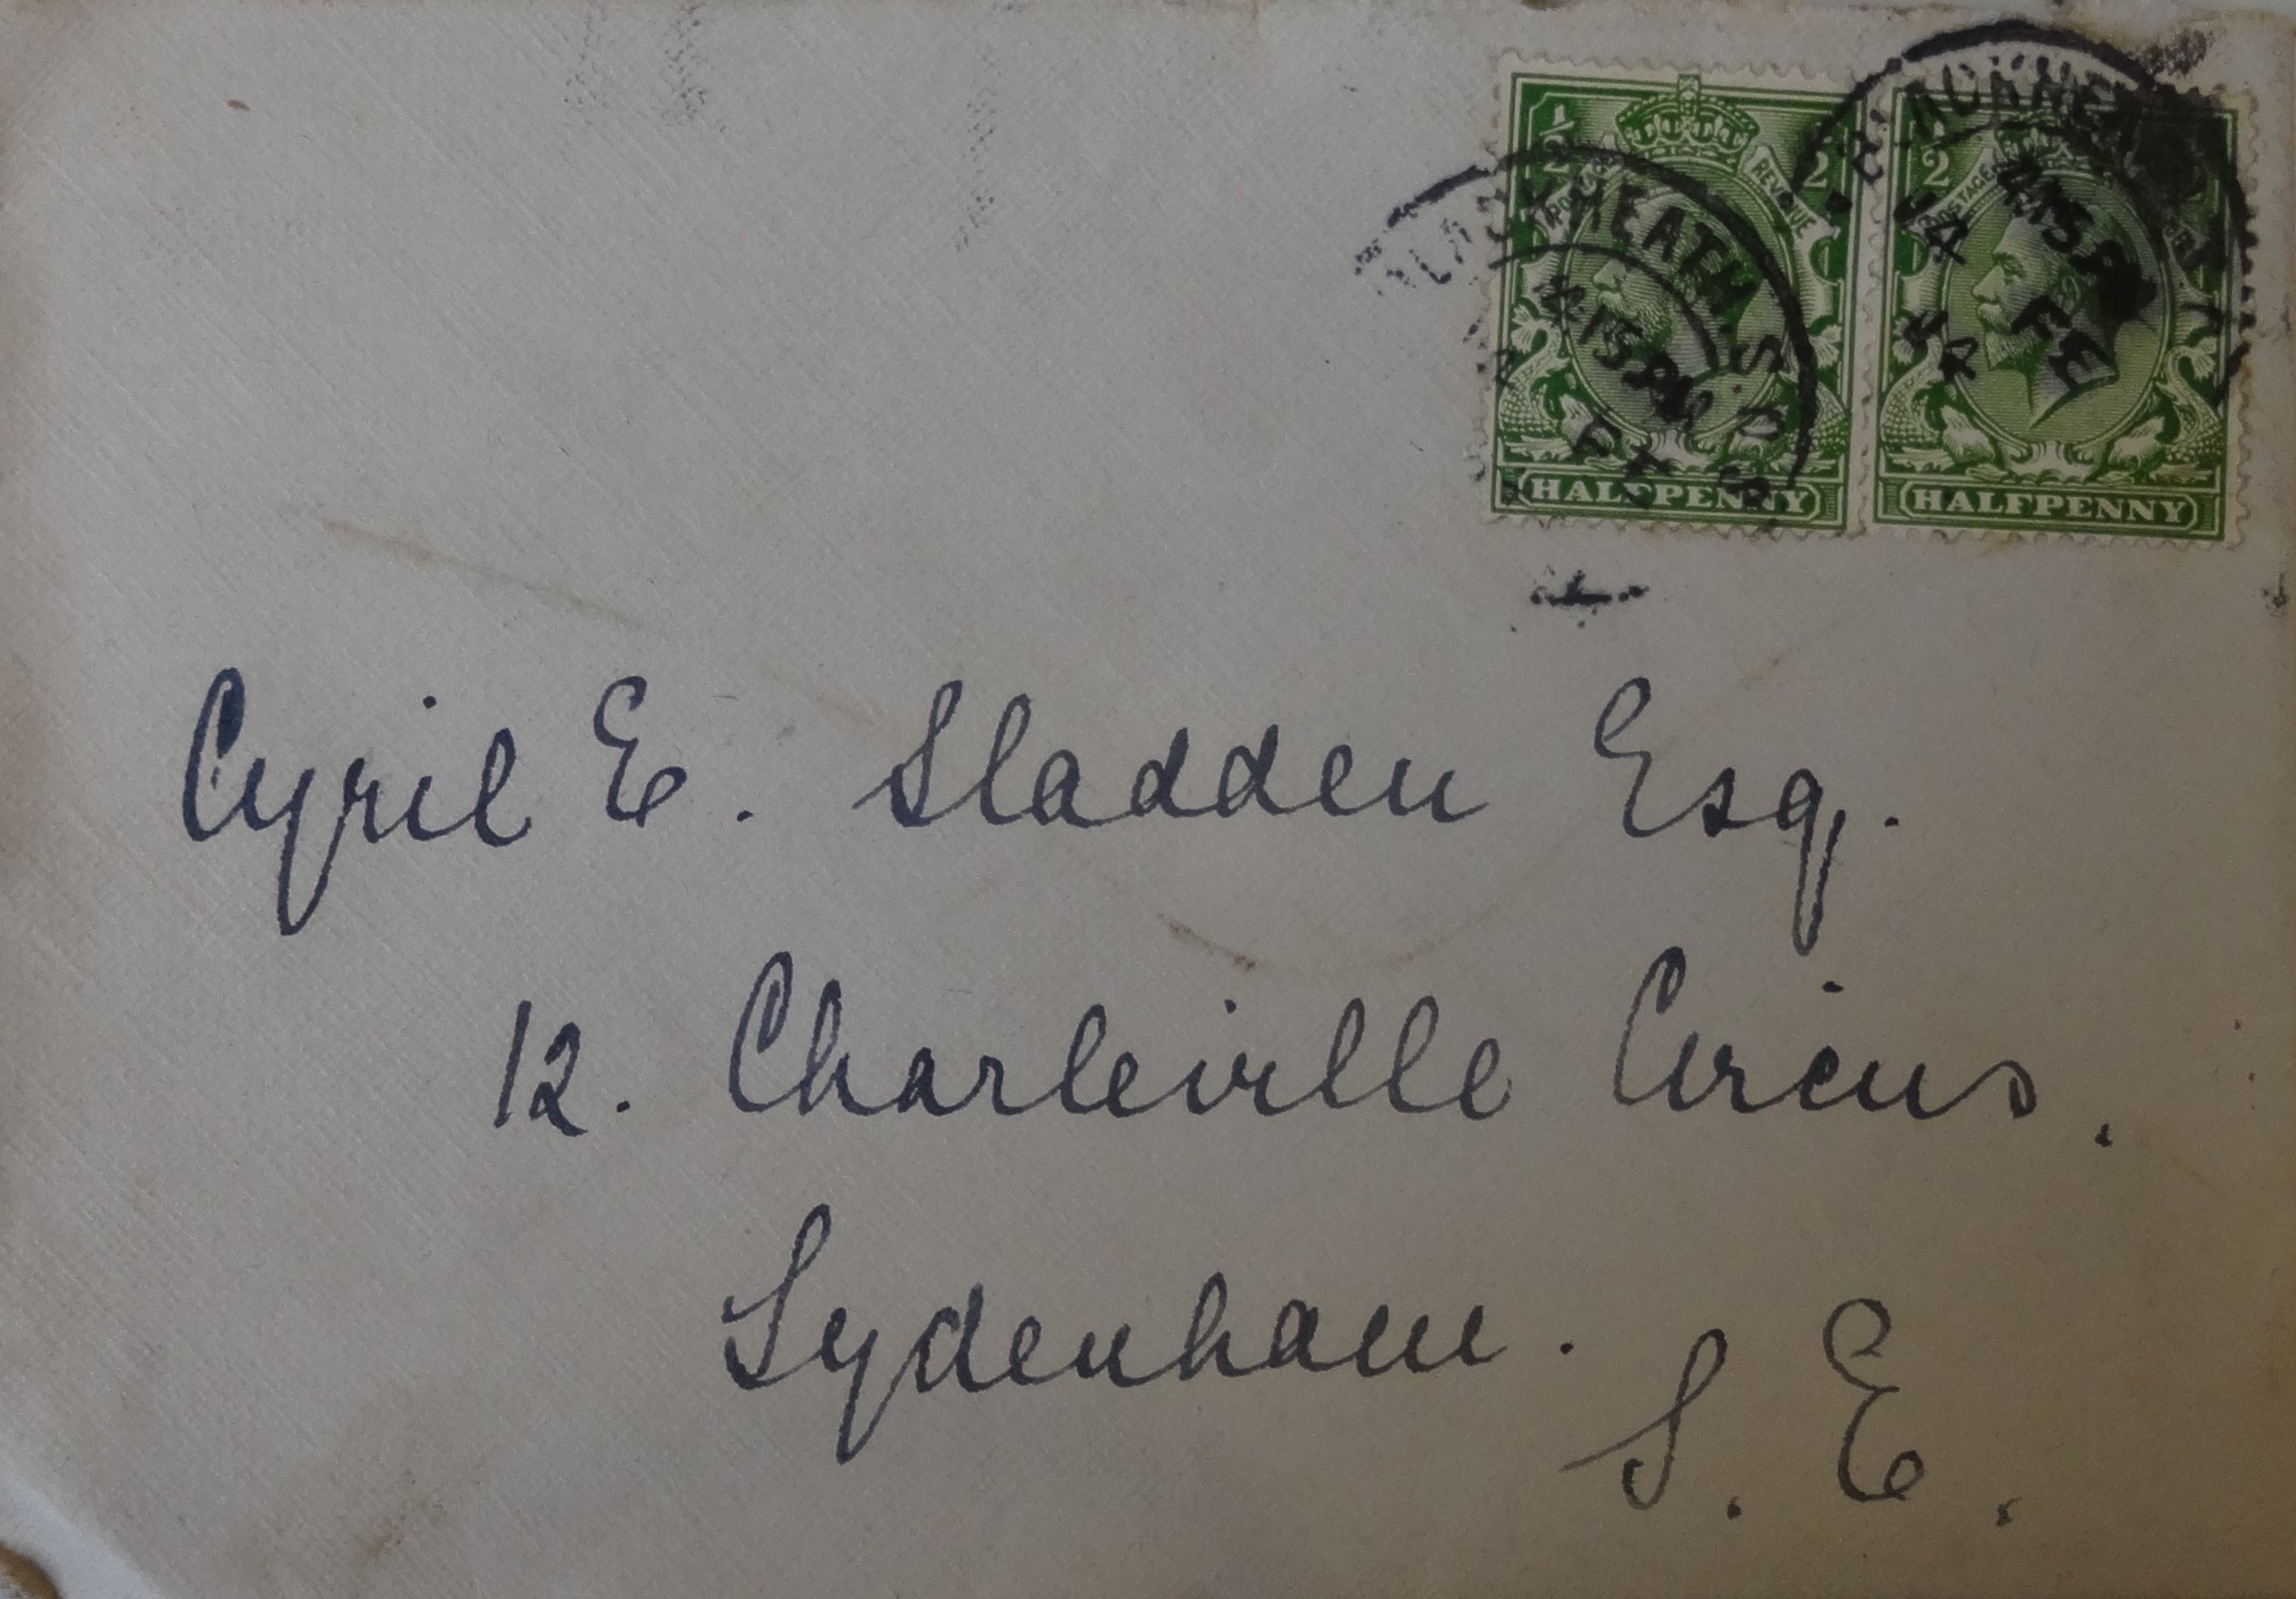 ½ ½
POSTAGE REVENUE
HALFPENNY
½
POSTAGE
HALFPENNY
BLACKHEATH. S.O.
4.15 PM
FE
4.15 PM
FE
14
Cyril E. Sladden Esq.
12. Charleville Circus.
Sydenham.
S. E.